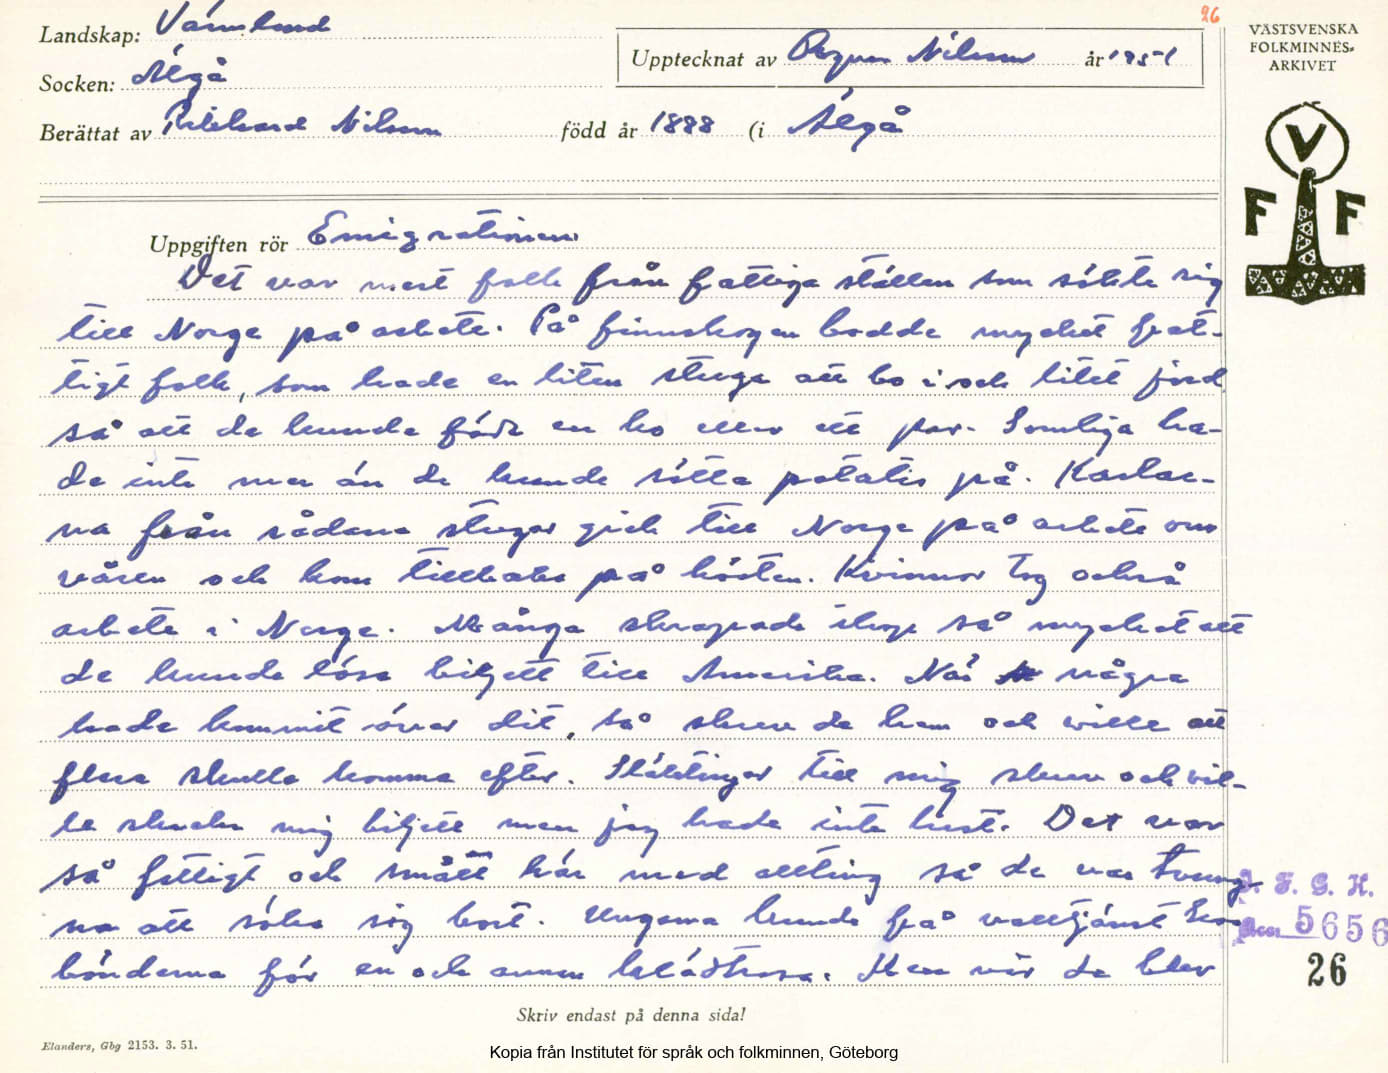 26
Landskap: Värmland
Upptecknat av Ragnar Nilsson år 1951
VÄSTSVENSKA
FOLKMINNES-
ARKIVET
Socken: Älgå
Berättat av Rikard Nilsson född år 1888 (i Älgå
V
F F
Uppgiften rör Emigrationen
Det var mest folk från fattiga ställen som sökte sig
till Norge på arbete. På finnskogen bodde mycket fat-
tigt folk, som hade en liten stuga att bo i och litet jord
så att de kunde föda en ko eller ett par. Somliga ha-
de inte mer än de kunde sätta potatis på. Karlar-
na från sådana stugor gick till Norge på arbete om
våren och kom tillbaka på hösten. Kvinnor tog också
arbete i Norge. Många skrapade ihop så mycket att
de kunde lösa biljett till Amerika. När några
hade kommit över dit, så skrev de hem och ville att
flera skulle komma efter. Släktingar till mig skrev och vil-
le skicka mig biljett men jag hade inte lust. Det var
så fattigt och smått här med allting så de var tvung-
na att söka sig bort. Ungarna kunde få valltjänst hos
bönderna för en och annan klädtrasa. Men när de blev
I. F. G. H.
Acc. 5656
26
Skriv endast på denna sida!
Elanders, Gbg 2153. 3. 51.
Kopia från Institutet för språk och folkminnen, Göteborg